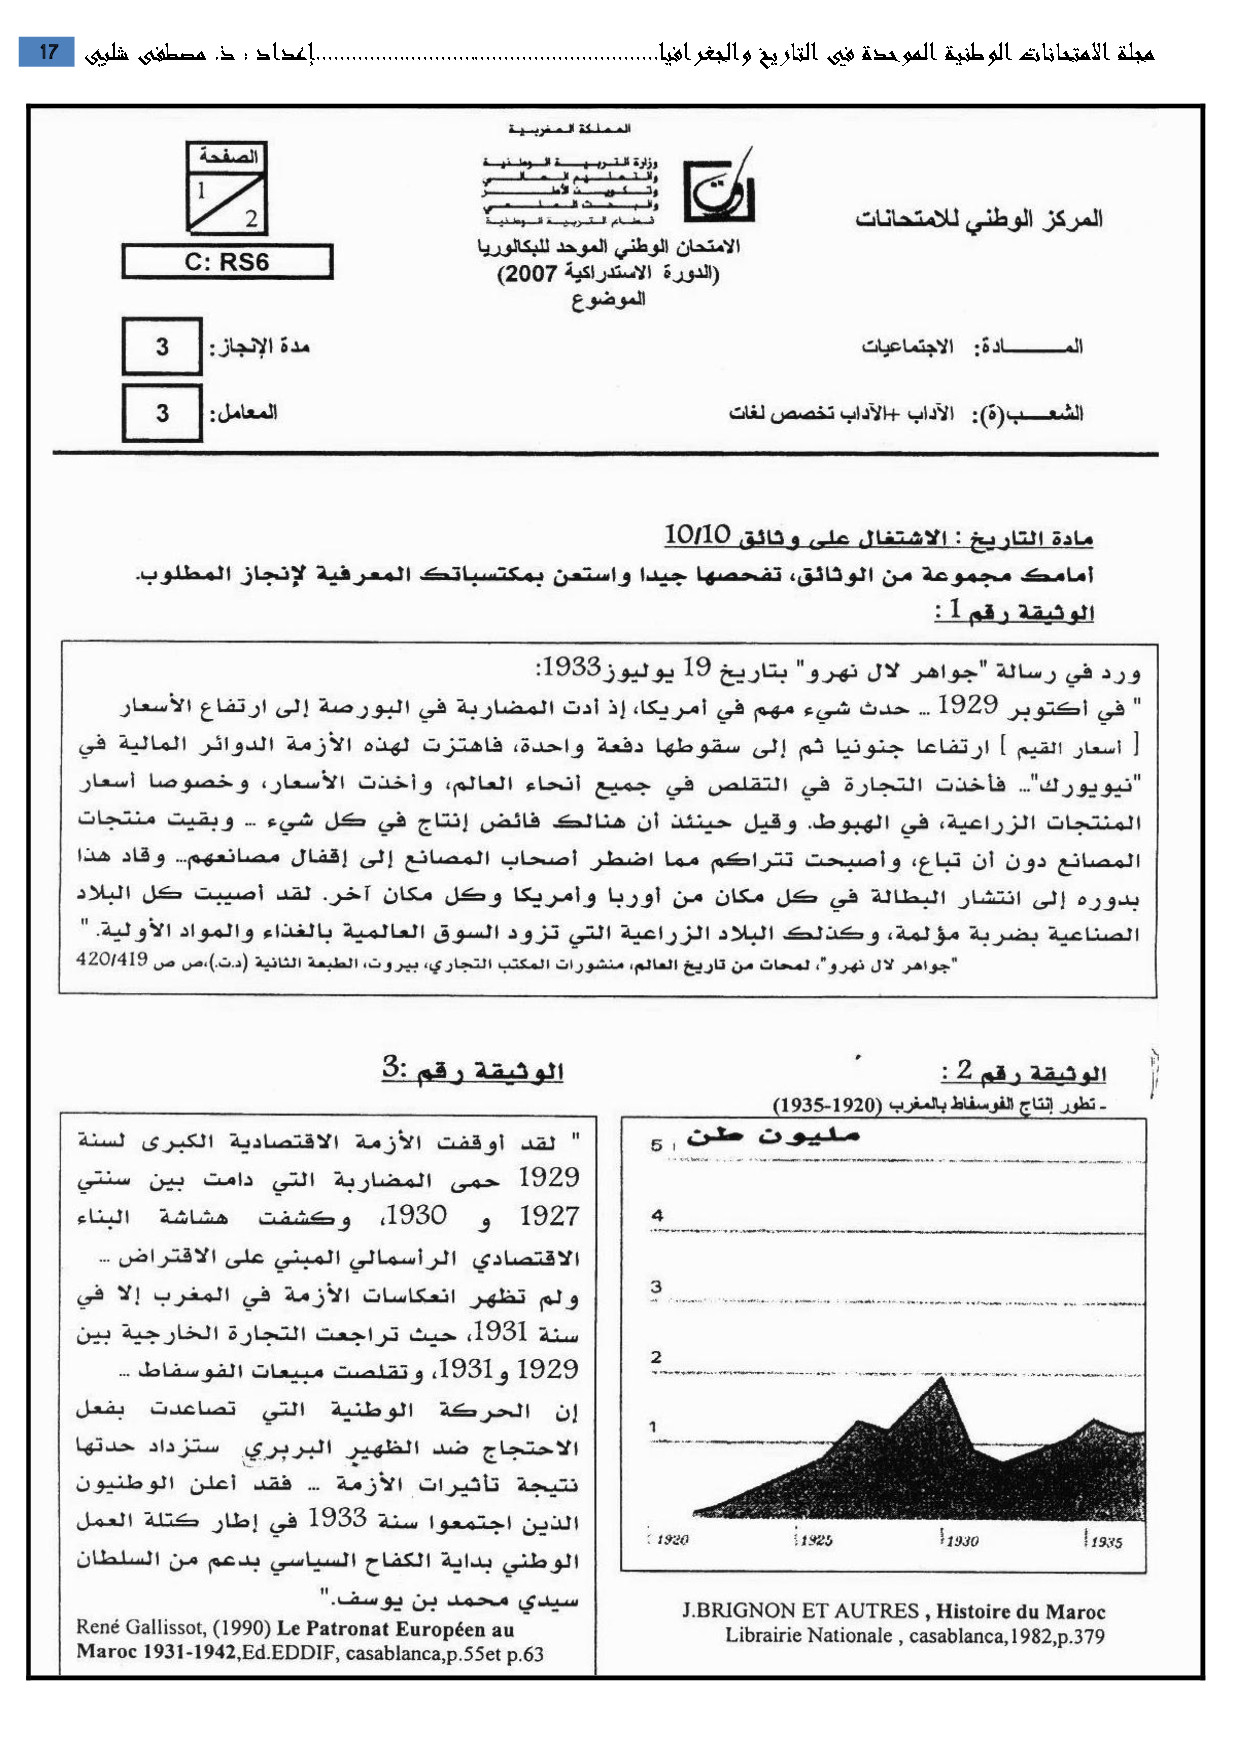 مجلة الامتحانات الوطنية الموحدة في التاريخ والجغرافيا.......................................................إعداد : ذ. مصطفى شلبي 17
المملكة المغربية
وزارة التربيـــة الـــوطنيـــة
والتعلـيـم العــــالــــي
وتـكـــويـــن الأطـــــر
والبـحــث العـلـمــي
قـطـاع التـربيـة الوطنيـة
المركز الوطني للامتحانات
الصفحة
1
2
C: RS6
الامتحان الوطني الموحد للبكالوريا
(الدورة الاستدراكية 2007)
الموضوع
المـــــــادة: الاجتماعيات
مدة الإنجاز: 3
الشعـــب(ة): الآداب +الآداب تخصص لغات
المعامل: 3
مادة التاريخ : الاشتغال على وثائق 10/10
أمامك مجموعة من الوثائق، تفحصها جيدا واستعن بمكتسباتك المعرفية لإنجاز المطلوب.
الوثيقة رقم 1 :
ورد في رسالة "جواهر لال نهرو" بتاريخ 19 يوليوز1933:
" في أكتوبر 1929 ... حدث شيء مهم في أمريكا، إذ أدت المضاربة في البورصة إلى ارتفاع الأسعار
[ أسعار القيم ] ارتفاعا جنونيا ثم إلى سقوطها دفعة واحدة، فاهتزت لهذه الأزمة الدوائر المالية في
"نيويورك"... فأخذت التجارة في التقلص في جميع أنحاء العالم، وأخذت الأسعار، وخصوصا أسعار
المنتجات الزراعية، في الهبوط. وقيل حينئذ أن هنالك فائض إنتاج في كل شيء ... وبقيت منتجات
المصانع دون أن تباع، وأصبحت تتراكم مما اضطر أصحاب المصانع إلى إقفال مصانعهم... وقاد هذا
بدوره إلى انتشار البطالة في كل مكان من أوربا وأمريكا وكل مكان آخر. لقد أصيبت كل البلاد
الصناعية بضربة مؤلمة، وكذلك البلاد الزراعية التي تزود السوق العالمية بالغذاء والمواد الأولية. "
"جواهر لال نهرو"، لمحات من تاريخ العالم، منشورات المكتب التجاري، بيروت، الطبعة الثانية (د.ت.)،ص ص 420/419
الوثيقة رقم 2 :
- تطور إنتاج الفوسفاط بالمغرب (1920-1935)
مليون طن
5
4
3
2
1
1920 1925 1930 1935
J.BRIGNON ET AUTRES , Histoire du Maroc
Librairie Nationale , casablanca,1982,p.379
الوثيقة رقم 3:
" لقد أوقفت الأزمة الاقتصادية الكبرى لسنة
1929 حمى المضاربة التي دامت بين سنتي
1927 و 1930، وكشفت هشاشة البناء
الاقتصادي الرأسمالي المبني على الاقتراض ...
ولم تظهر انعكاسات الأزمة في المغرب إلا في
سنة 1931، حيث تراجعت التجارة الخارجية بين
1929 و1931، وتقلصت مبيعات الفوسفاط ...
إن الحركة الوطنية التي تصاعدت بفعل
الاحتجاج ضد الظهير البربري ستزداد حدتها
نتيجة تأثيرات الأزمة ... فقد أعلن الوطنيون
الذين اجتمعوا سنة 1933 في إطار كتلة العمل
الوطني بداية الكفاح السياسي بدعم من السلطان
سيدي محمد بن يوسف."
René Gallissot, (1990) Le Patronat Européen au
Maroc 1931-1942,Ed.EDDIF, casablanca,p.55et p.63